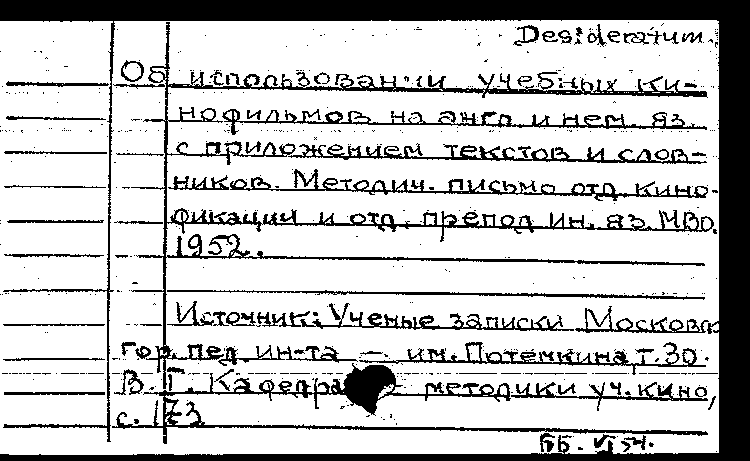 Desideratum.
Об использовании учебных ки-
нофильмов на англ и нем. яз.
с приложением текстов и слов-
ников. Методич. письмо отд. кино-
фикации и отд. препод ин. яз. МВО.
1952.
Источник: Ученые записки Московск
гор. пед. ин-та — им. Потемкина, т. 30.
В. I. Кафедра методики уч. кино,
с. 173
ББ. VI 54.